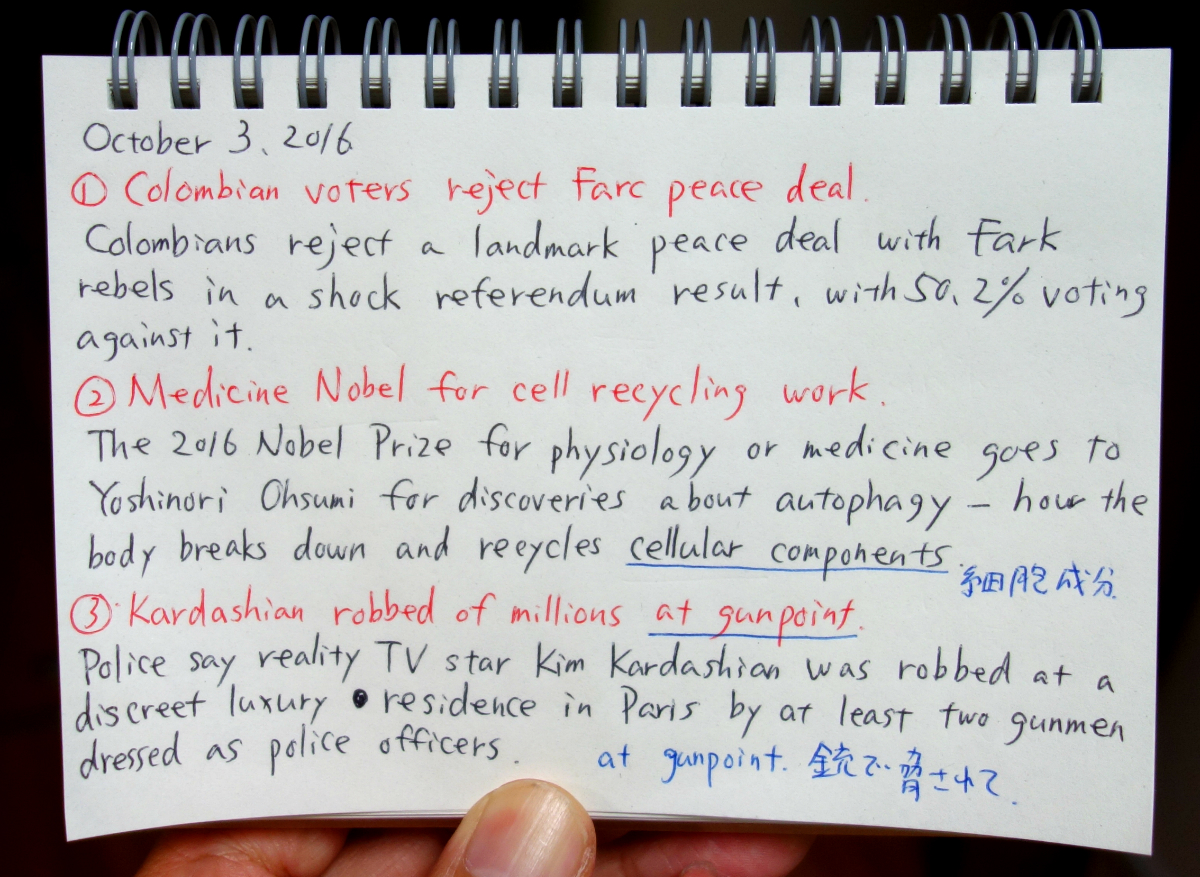 October 3, 2016
① Colombian voters reject Farc peace deal.
Colombians reject a landmark peace deal with Fark
rebels in a shock referendum result, with 50.2% voting
against it.
② Medicine Nobel for cell recycling work.
The 2016 Nobel Prize for physiology or medicine goes to
Yoshinori Ohsumi for discoveries about autophagy – how the
body breaks down and recycles cellular components.
細胞成分
③ Kardashian robbed of millions at gunpoint.
Police say reality TV star Kim Kardashian was robbed at a
discreet luxury residence in Paris by at least two gunmen
dressed as police officers.
at gunpoint. 銃で脅されて.